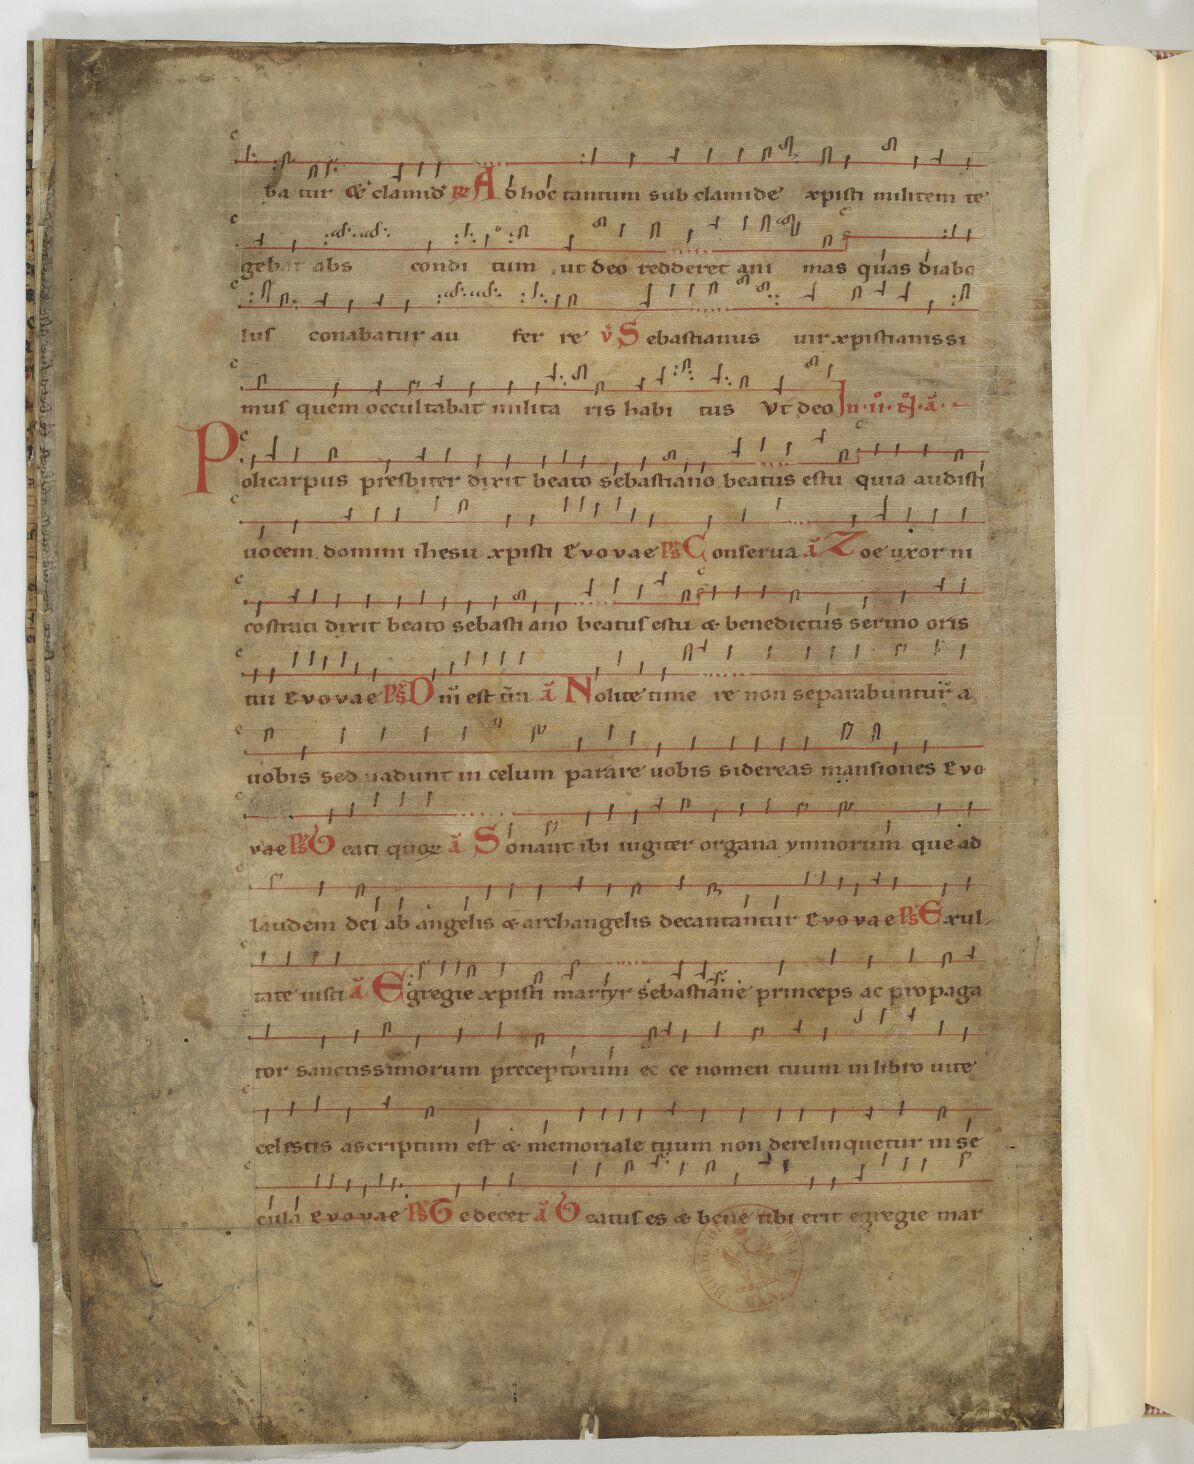 ba tur & clamid re Ad hoc tantum sub clamide xpisti militem te
gebat abs condi tum ut deo redderet ani mas quas diabo
lus conabatur au fer re v Sebastianus vir xpistianissi
mus quem occultabat milita ris habi tus Vt deo In .ii. N. a.
Policarpus presbiter dixit beato sebastiano beatus es tu quia audisti
uocem domini ihesu xpisti Evovae Ps Conserua a Zoe uxor ni
costrati dixit beato sebasti ano beatus es tu & benedictus sermo oris
tui Evovae Ps Dni est tra a Nolite time re non separabuntur a
uobis sed uadunt in celum parare uobis sidereas mansiones Evo
vae Ps Beati quor a Sonant ibi iugiter organa ymnorum que ad
laudem dei ab angelis & archangelis decantantur Evovae Ps Exul
tate iusti a Egregie xpisti martyr sebastiane princeps ac propaga
tor sanctissimorum preceptorum ec ce nomen tuum in libro uite
celestis ascriptum est & memoriale tuum non derelinquetur in se
cula Evovae Ps Te decet a Beatus es & bene tibi erit egregie mar